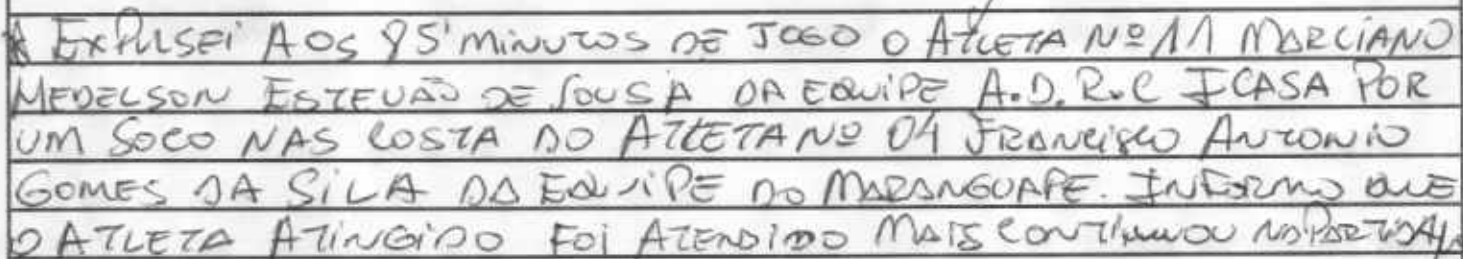 EXPULSEI AOS 85' MINUTOS DE JOGO O ATLETA Nº 11 MARCIANO
MEDELSON ESTEVÃO DE SOUSA DA EQUIPE A.D.R.C ICASA POR
UM SOCO NAS COSTA DO ATLETA Nº 04 FRANCISCO ANTONIO
GOMES DA SILA DA EQUIPE DO MARANGUAPE. INFORMO QUE
O ATLETA ATINGIDO FOI ATENDIDO MAIS CONTINUOU NA PARTIDA